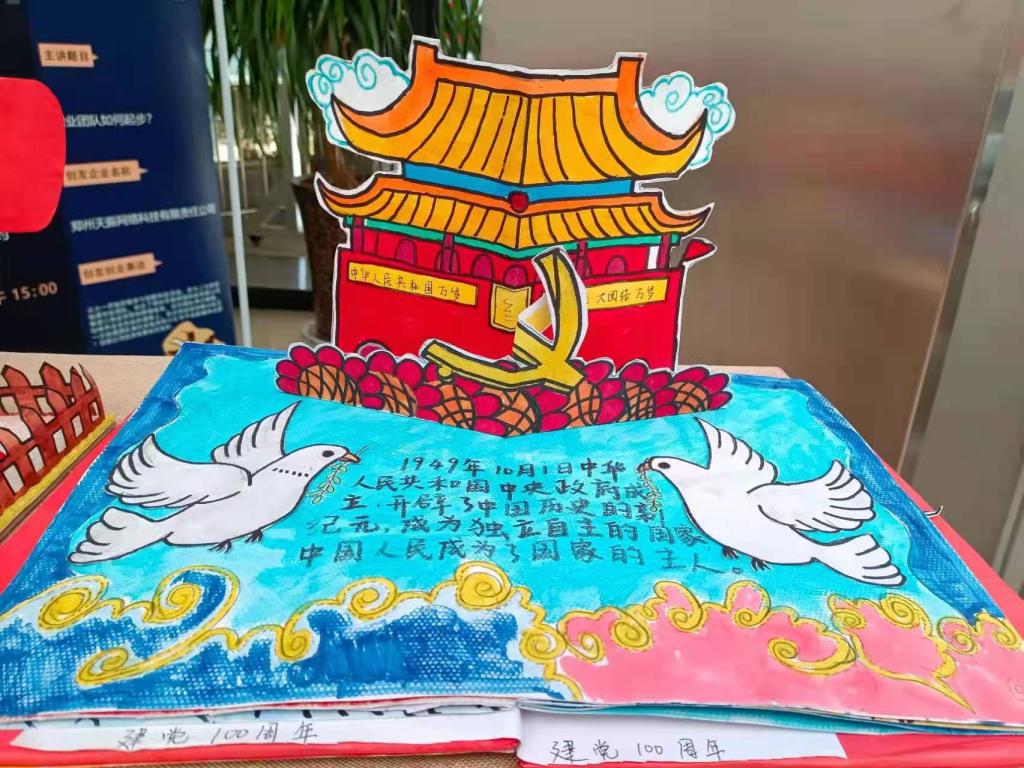 主讲题目
业团队如何起步?
创发企业名称
郑州天振网络科技有限责任公司
创发创业集话
15:00
中华人民共和国万岁
大团结万岁
1949年10月1日中华
人民共和国中央政府成
主,开辟了中国历史的新
纪元,成为独立自主的国家
中国人民成为了国家的主人。
建党 100周年
建党 100周年